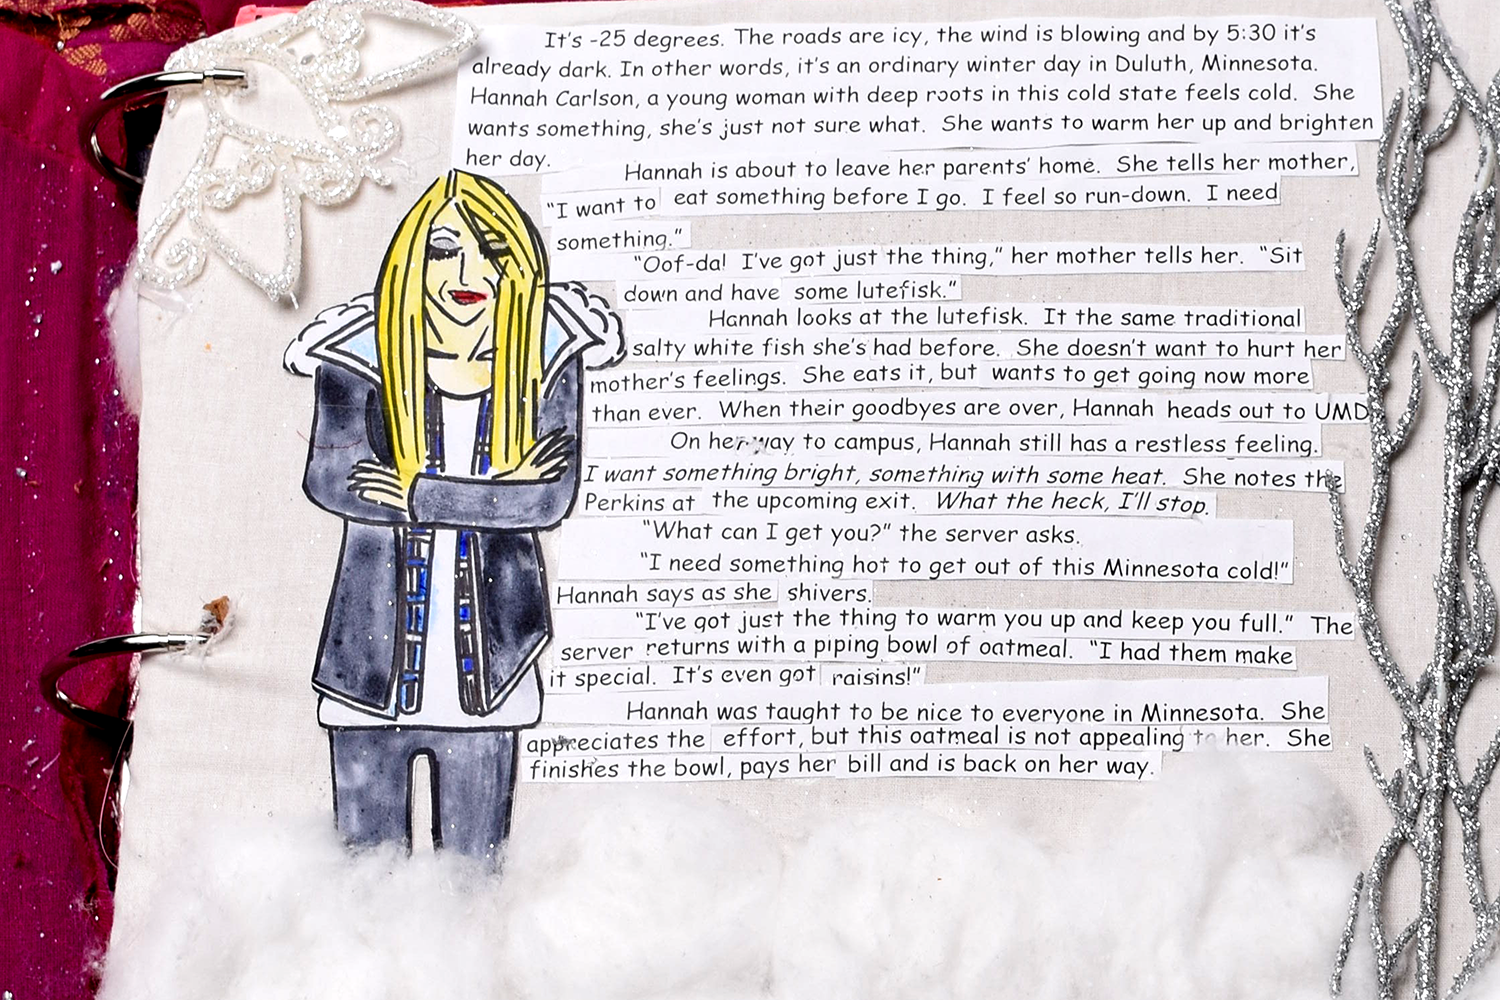 It's -25 degrees. The roads are icy, the wind is blowing and by 5:30 it's
already dark. In other words, it's an ordinary winter day in Duluth, Minnesota.
Hannah Carlson, a young woman with deep roots in this cold state feels cold. She
wants something, she's just not sure what. She wants to warm her up and brighten
her day.
Hannah is about to leave her parents' home. She tells her mother,
"I want to eat something before I go. I feel so run-down. I need
something."
"Oof-da! I've got just the thing," her mother tells her. "Sit
down and have some lutefisk."
Hannah looks at the lutefisk. It the same traditional
salty white fish she's had before. She doesn't want to hurt her
mother's feelings. She eats it, but wants to get going now more
than ever. When their goodbyes are over, Hannah heads out to UMD
On her way to campus, Hannah still has a restless feeling.
I want something bright, something with some heat. She notes the
Perkins at the upcoming exit. What the heck, I'll stop.
"What can I get you?" the server asks.
"I need something hot to get out of this Minnesota cold!"
Hannah says as she shivers.
"I've got just the thing to warm you up and keep you full." The
server returns with a piping bowl of oatmeal. "I had them make
it special. It's even got raisins!"
Hannah was taught to be nice to everyone in Minnesota. She
appreciates the effort, but this oatmeal is not appealing to her. She
finishes the bowl, pays her bill and is back on her way.